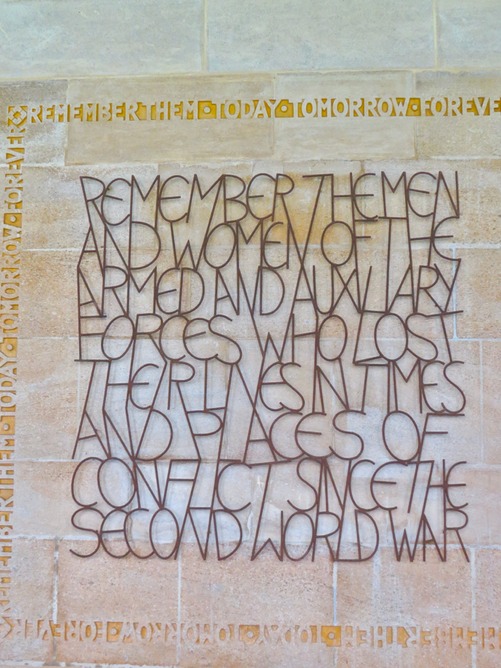 REMEMBER THEM · TODAY · TOMORROW · FOREVE
REMEMBER THE MEN
AND WOMEN OF THE
ARMED AND AUXILIARY
FORCES WHO LOST
THEIR LIVES IN TIMES
AND PLACES OF
CONFLICT SINCE THE
SECOND WORLD WAR
REMEMBER THEM · TODAY · TOMORROW · FOREVER
REMEMBER THEM · TODAY · TOMORROW · FOREVER